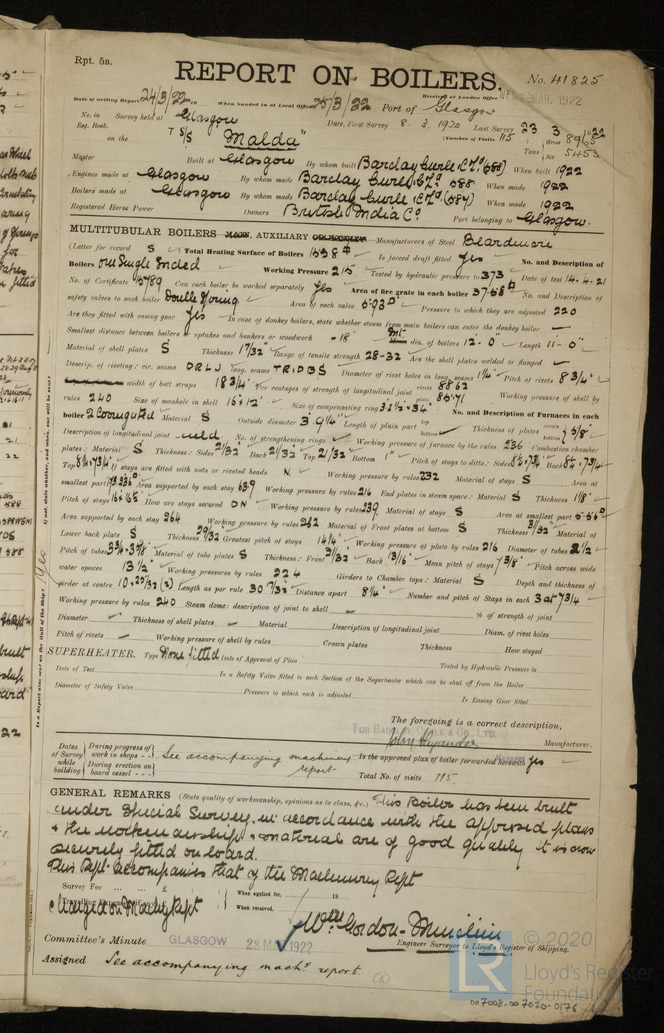 Rpt. 5a.
REPORT ON BOILERS.
No. 41825
Date of writing Report 24/3/22 19 When handed in at Local Office 25/3/22 Port of Glasgow
Received at London Office MAR. 1922
No. in Survey held at Glasgow Date, First Survey 8. 3. 1920 Last Survey 23 3 1922
Reg. Book. (Number of Visits 115)
on the T S/S "Malda" Tons Gross 8965 Net 5453
Master Built at Glasgow By whom built Barclay Curle & Co Ld (588) When built 1922
Engines made at Glasgow By whom made Barclay Curle & Co Ld 588 When made 1922
Boilers made at Glasgow By whom made Barclay Curle & Co Ld (587) When made 1922
Registered Horse Power Owners British India Co. Port belonging to Glasgow.
MULTITUBULAR BOILERS MAIN, AUXILIARY OR DONKEY. Manufacturers of Steel Beardmore
(Letter for record S) Total Heating Surface of Boilers 1538 Is forced draft fitted Yes No. and Description of
Boilers one Single Ended Working Pressure 215 Tested by hydraulic pressure to 373 Date of test 14.4.21
No. of Certificate 15789 Can each boiler be worked separately Yes Area of fire grate in each boiler 37.58 No. and Description of
safety valves to each boiler Double Spring Area of each valve 5.93 Pressure to which they are adjusted 220
Are they fitted with easing gear Yes In case of donkey boilers, state whether steam from main boilers can enter the donkey boiler —
Smallest distance between boilers or uptakes and bunkers or woodwork 18" Int. dia. of boilers 12'-0" Length 11'-0"
Material of shell plates S Thickness 1 7/32" Range of tensile strength 28-32 Are the shell plates welded or flanged —
Descrip. of riveting: cir. seams D R L J long. seams T R D B S Diameter of rivet holes in long. seams 1 1/4" Pitch of rivets 8 3/4"
width of butt straps 18 3/4" Per centages of strength of longitudinal joint rivets 88.62 plate 85.71 Working pressure of shell by
rules 240 Size of manhole in shell 16" x 12" Size of compensating ring 32 1/2 x 34" No. and Description of Furnaces in each
boiler 2 Corrugated Material S Outside diameter 3' 9 1/4" Length of plain part top bottom Thickness of plates crown bottom 5/8"
Description of longitudinal joint weld. No. of strengthening rings Working pressure of furnace by the rules 236 Combustion chamber
plates: Material S Thickness: Sides 21/32 Back 21/32 Top 21/32 Bottom 1" Pitch of stays to ditto: Sides 8 1/4 x 7 3/4 Back 8 1/4 x 7 3/4
Top 8 1/4 x 7 3/4 If stays are fitted with nuts or riveted heads N. Working pressure by rules 232 Material of stays S Area at
smallest part Area supported by each stay 63.9 Working pressure by rules 216 End plates in steam space: Material S Thickness 1 1/8"
Pitch of stays 16 x 16 1/2 How are stays secured D N Working pressure by rules Material of stays S Area at smallest part 5.56
Area supported by each stay 264 Working pressure by rules 262 Material of Front plates at bottom S Thickness 31/32 Material of
Lower back plate S Thickness 29/32 Greatest pitch of stays 14 1/4 Working pressure of plate by rules 216 Diameter of tubes 2 1/2
Pitch of tubes 3 3/4 x 3 7/8 Material of tube plates S Thickness: Front 31/32 Back 13/16 Mean pitch of stays 7 3/8 Pitch across wide
water spaces 13 1/2" Working pressures by rules 224 Girders to Chamber tops: Material S Depth and thickness of
girder at centre 10 x 29/32 (2) Length as per rule 30 17/32 Distance apart 8 1/4 Number and pitch of Stays in each 3 at 7 3/4
Working pressure by rules 240 Steam dome: description of joint to shell — % of strength of joint
Diameter — Thickness of shell plates — Material Description of longitudinal joint Diam. of rivet holes
Pitch of rivets — Working pressure of shell by rules Crown plates Thickness How stayed
SUPERHEATER. Type None fitted Date of Approval of Plan Tested by Hydraulic Pressure to
Date of Test Is a Safety Valve fitted to each Section of the Superheater which can be shut off from the Boiler
Diameter of Safety Valve Pressure to which each is adjusted Is Easing Gear fitted
The foregoing is a correct description,
FOR BARCLAY, CURLE & CO., LTD.
Manufacturer.
Dates of Survey while building During progress of work in shops - - During erection on board vessel - - - See accompanying machinery report
Is the approved plan of boiler forwarded herewith Yes
Total No. of visits 115.
GENERAL REMARKS (State quality of workmanship, opinions as to class, &c.) This Boiler has been built
under Special Survey, in accordance with the approved plans
& the workmanship & material are of good quality it is now
securely fitted on board.
This Rept. accompanies that of the Machinery Rept
Survey Fee ... ... £ : : When applied for, 19
Charged on Machy Rept When received, 19
Wm Gordon-
Engineer Surveyor to Lloyd's Register of Shipping.
Committee's Minute GLASGOW 28 MAR 1922
Assigned See accompanying machy report
© 2020
Lloyd's Register
Foundation
LR
007008-007020-0176